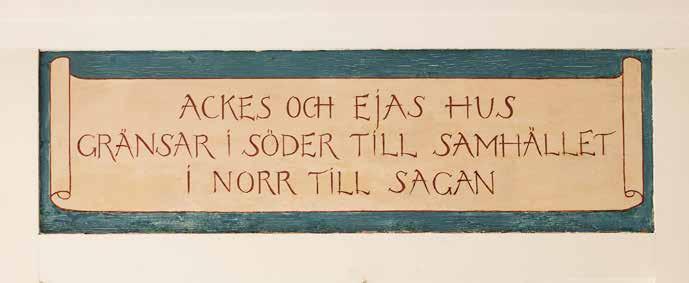 ACKES OCH EJAS HUS
GRÄNSAR I SÖDER TILL SAMHÄLLET
I NORR TILL SAGAN